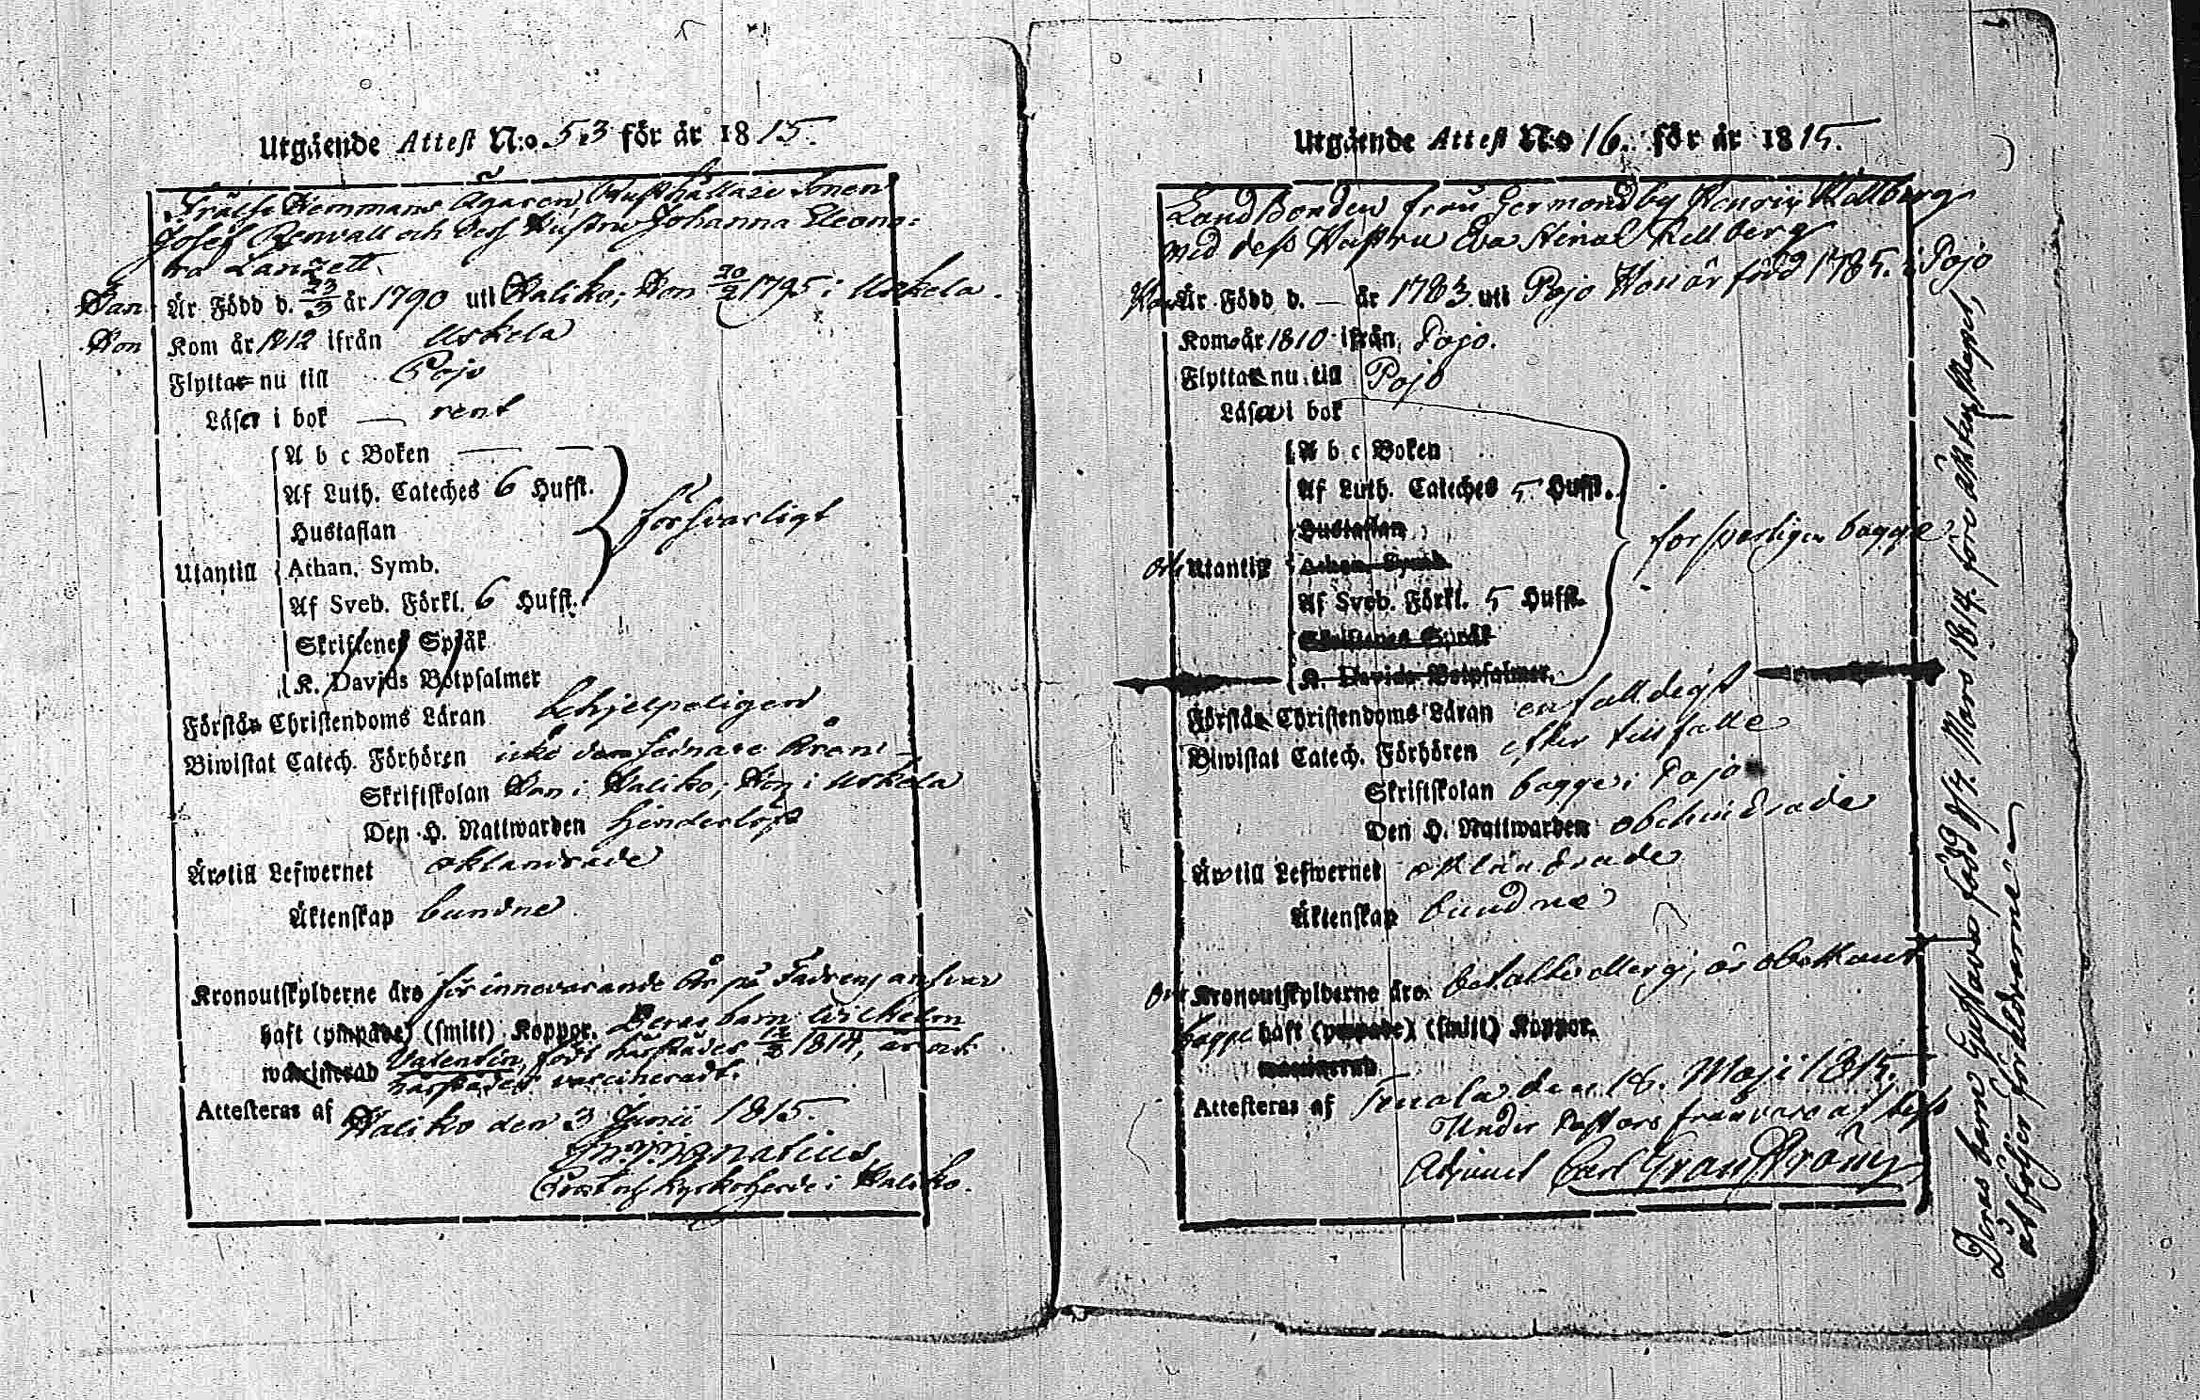 Utgående Attest N:o 53 för år 1815.
Frälse Hemmans Ägaren, Rusthållare Sonen
Josef Renvall och dess Hustru Johanna Eleono:
ra Lanzett
Han Är Född d. 23/3 år 1790 uti Haliko; Hon 20/2 1795 i Uskela.
Hon Kom år 1812 ifrån Uskela
Flyttar nu till Pojo
Läsa i bok — rent
A b c Boken — —
Af Luth. Cateches 6 Hufst.
Hustaflan
försvarligt
Utantill Athan. Symb.
Af Sveb. Förkl. 6 Hufst.
Skriftenes Språk
K. Davids Botpsalmer
Förstår Christendoms Läran behjelpeligen
Biwistat Catech. Förhören icke den sednare
Skriftskolan Han i Haliko; Hon i Uskela
Den H. Nattwarden hinderlöst
Äro till Lefwernet oklandrade
Äktenskap bundne
Kronoutskylderne äro för innevarande år på Fadrens answar
haft (ympade) (smitt) Koppor. Deras barn Wilhelm
waccinerad Valentin, födt härstädes 12/3 1814, är ock
härstädes vaccineradt.
Attesteras af Haliko den 3 Junii 1815.
Ignatius
Prost och Kyrkoherde i Haliko.
Utgående Attest N:o 16. för år 1815.
Landbonden från Germundby Henric Kullberg
med dess Hustru Eva Kullberg
Han Är Född d. — år 1783 uti Pojo Hon är född 1785. i Pojo
Kom år 1810 ifrån Pojo.
Flyttar nu till Pojo
Läsa i bok
A b c Boken
Af Luth. Cateches 5 Hufst.
Hustaflan
försvarligen bägge
och Utantill Athan. Symb.
Af Sveb. Förkl. 5 Hufst.
Skriftenes Språk
K. Davids Botpsalmer.
Förstår Christendoms Läran enfalldigt
Biwistat Catech. Förhören efter tillfälle
Skriftskolan bägge i Pojo
Den H. Nattwarden obehindrade
Äro till Lefwernet oklandrade
Äktenskap bundne
Om Kronoutskylderne äro betallte eller ej, är obekant
bägge haft (ympade) (smitt) Koppor.
waccinerad
Attesteras af Tenala den 16. Maji 1815.
Under Pastors frånvaro af dess
Adjunct Carl Granström
Deras barn Gustava född d. 7. Mars 1814. före äktenskapet,
åtföljer föräldrarne